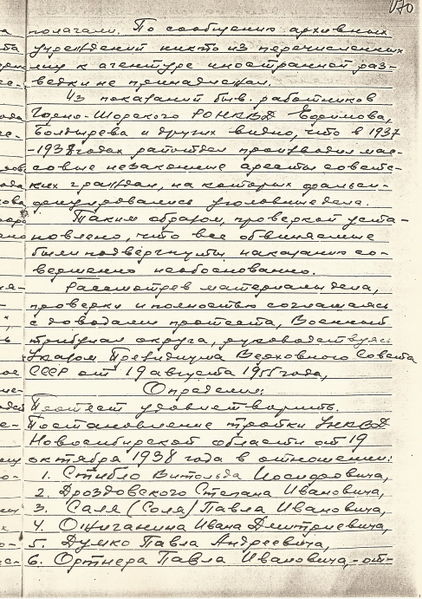 170
полагали. По сообщению архивных
учреждений никто из перечисленных
лиц к агентуре иностранной раз-
ведки не принадлежал.
Из показаний быв. работников
Горно-Шорского РОНКВД Ефимова,
Болдырева и других видно, что в 1937
-1938 годах райотдел производил мас-
совые незаконные аресты советс-
ких граждан, на которых фальси-
фицировались уголовные дела.
Таким образом, проверкой уста-
новлено, что все обвиняемые
были подвергнуты наказанию со-
вершенно необоснованно.
Рассмотрев материалы дела,
проверки и полностью соглашаясь
с доводами протеста, Военный
трибунал округа, руководствуясь
Указом Президиума Верховного Совета
СССР от 19 августа 1955 года,
Определил:
Протест удовлетворить.
Постановление тройки УНКВД
Новосибирской области от 19
октября 1938 года в отношении:
1. Стибло Витольда Иосифовича,
2. Дроздовского Степана Ивановича,
3. Саля (Соля) Павла Ивановича,
4. Ивана Дмитриевича,
5. Думко Павла Андреевича,
6. Ортнера Павла Ивановича, - от-